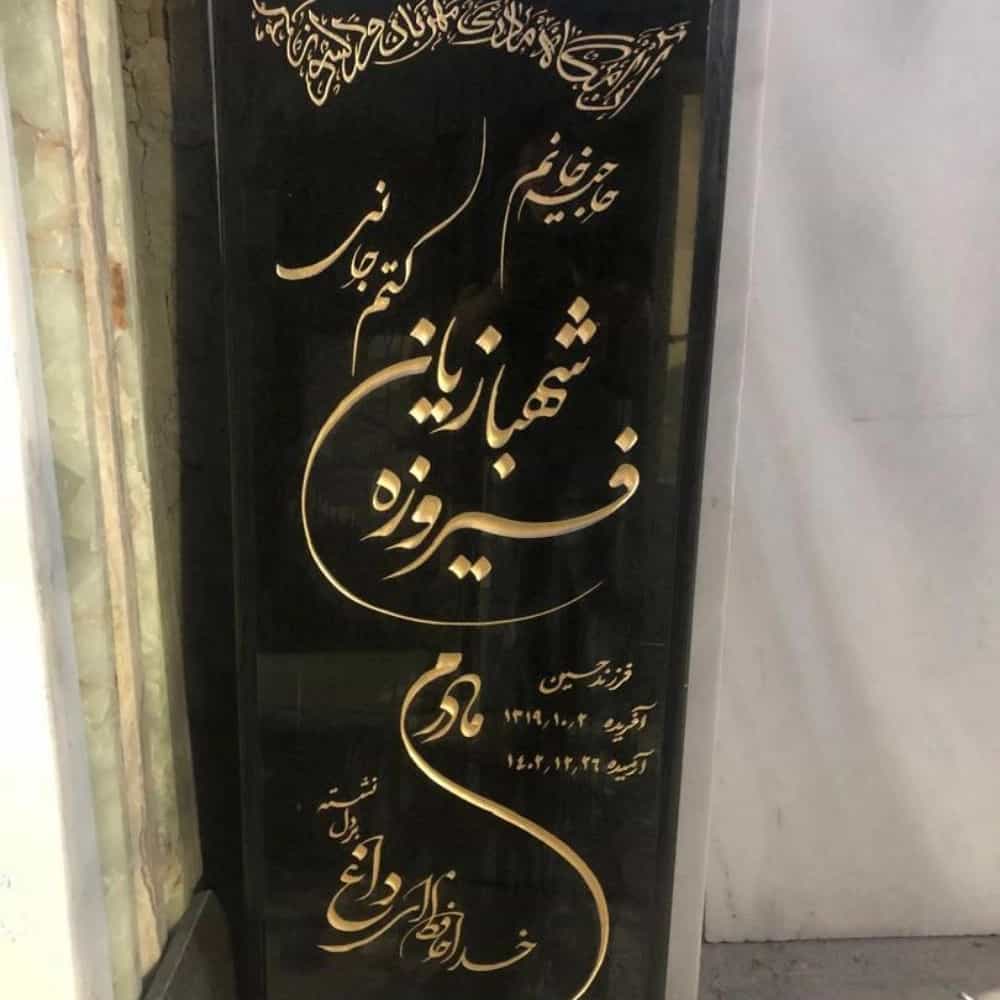 آرامگاه مادری مهربان و دلسوز
حاجیه خانم
کتم جانی
شهبازیان
فیروزه
فرزند حسین
آفریده ۱۳۱۹٫۱۰٫۲
آرمیده ۱۴۰۲٫۱۲٫۲۶
مادرم
خداحافظ ای داغ
بر دل نشسته